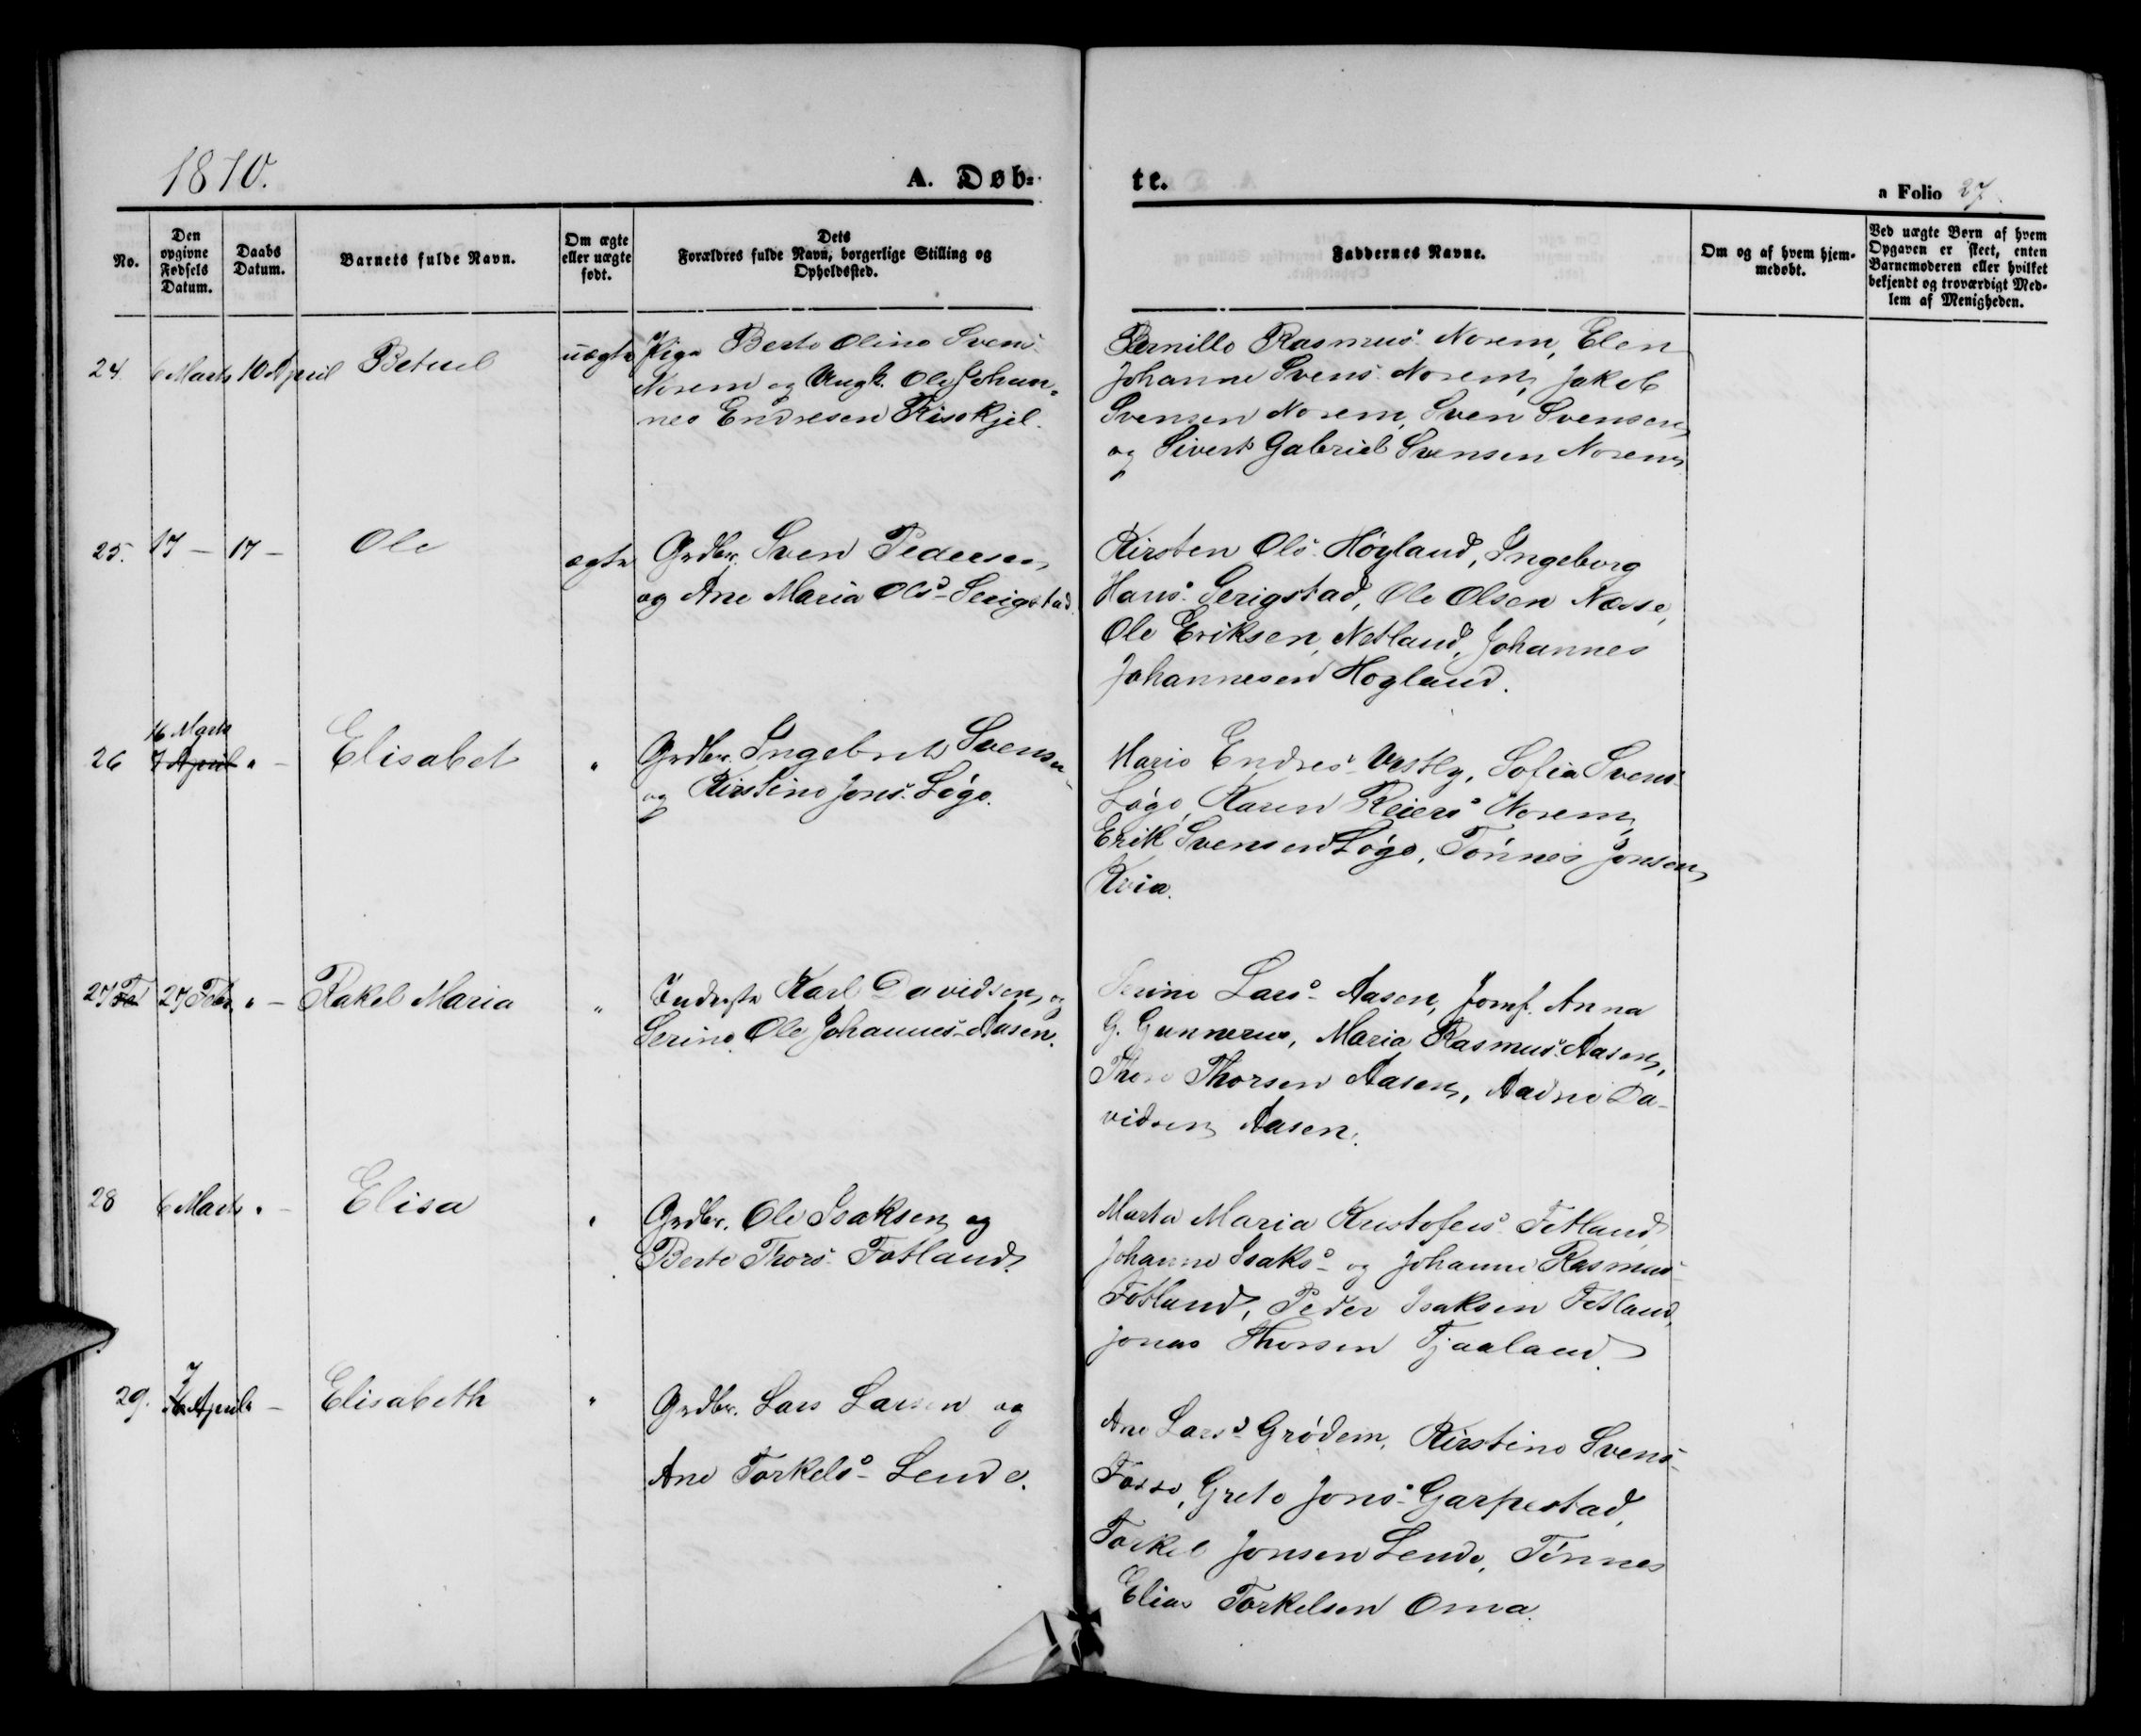 1870.
A. Døb-
te.
a Folio 27.
No.
Den opgivne Fødsels Datum.
Daabs Datum.
Barnets fulde Navn.
Om ægte eller uægte født.
Dets Forældres fulde Navn, borgerlige Stilling og Opholdssted.
Faddernes Navne.
Om og af hvem hjemmedøbt.
Ved uægte Børn af hvem Opgaven er skeet, enten Barnemoderen eller hvilket bekjendt og troværdigt Medlem af Menigheden.
24. 6 Marts 10 April Betuel uægte Pige Berte Oline Svens-
Norem og Ungk. Ole Johan-
nes Endresen Risskjel.
Pernille Rasmus- Norem, Elen
Johanne Svens- Norem, Jakob
Svensen Norem, Sven Svensen
og Sivert Gabriel Svensen Norem
25. 17 - 17 - Ole ægte Grdbr. Sven Pedersen
og Ane Maria Ols- Serigstad.
Kirsten Ols- Høyland, Ingeborg
Hans- Serigstad, Ole Olsen Næsse,
Ole Eriksen Netland, Johannes
Johannesen Høyland.
16 Marts
26 7 April " - Elisabet " Grdbr. Ingebret Svensen
og Kirstine Jons- Løge.
Marie Endres- Vestly, Sofia Svens-
Løge, Karen Reiers- Norem,
Erik Svensen Løge, Tønnes Jonsen
Kvia.
27 27 Febr. " - Rakel Maria " Inderste Karl Davidsen og
Serine Ole Johannes- Aasen.
Serine Lars- Aasen, Jomf. Anna
G. Gunnerus, Maria Rasmus- Aasen,
Thore Thorsen Aasen, Aadne Da-
vidsen Aasen.
28 6 Marts " - Elisa " Grdbr. Ole Isaksen og
Berte Thors- Fotland.
Marta Maria Kristofers- Fotland
Johanne Isaks- og Johanne Rasmus-
Fotland, Peder Isaksen Fotland,
Jonas Thorsen Tjaaland.
29. 7 April " - Elisabeth " Grdbr. Lars Larsen og
Ane Torkels- Lende.
Ane Lars- Grødem, Kirstine Svens-
Fosse, Grete Jons- Garpestad,
Torkel Jonsen Lende, Tønnes
Elias Torkelsen Oma.